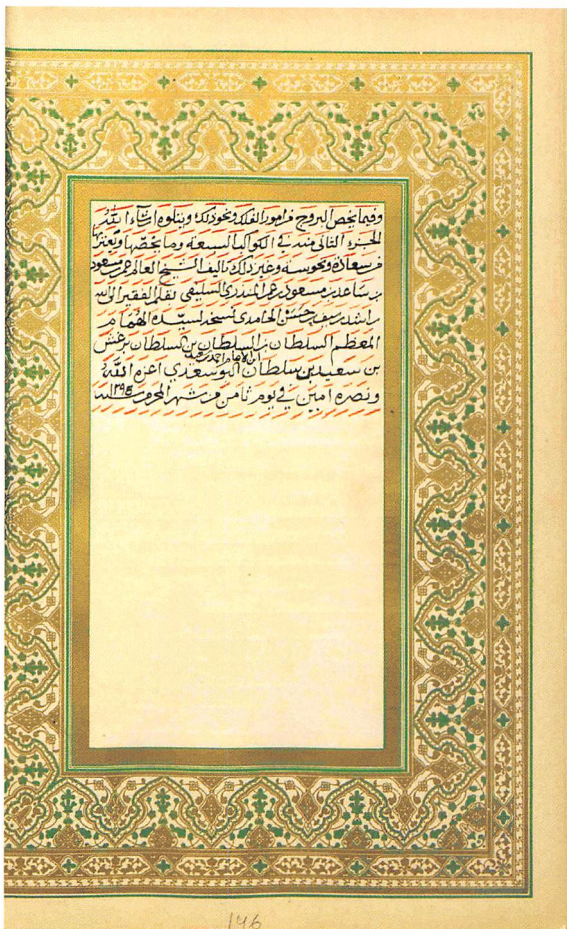 وفيما يخص البروج من امور الفلك ونحو ذلك ويتلوه انشآء الله
الجزء الثاني منه في الكواكب السبعة وما يخصها
من سعادة ونحوسة وغير ذلك تاليف الشيخ العالم عمر بن مسعود
بن ساعد بن مسعود بن عمر المنذري السليفي نقله الفقير الى الله
راشد بن سيف بن الحامدي نسخه لسيده الهمام
المعظم السلطان بن السلطان بن السلطان برغش
ابن الامام احمد بن سعيد
بن سعيد بن سلطان البوسعيدي اعزه الله
ونصره امين في يوم ثامن من شهر المحرم سنة
146